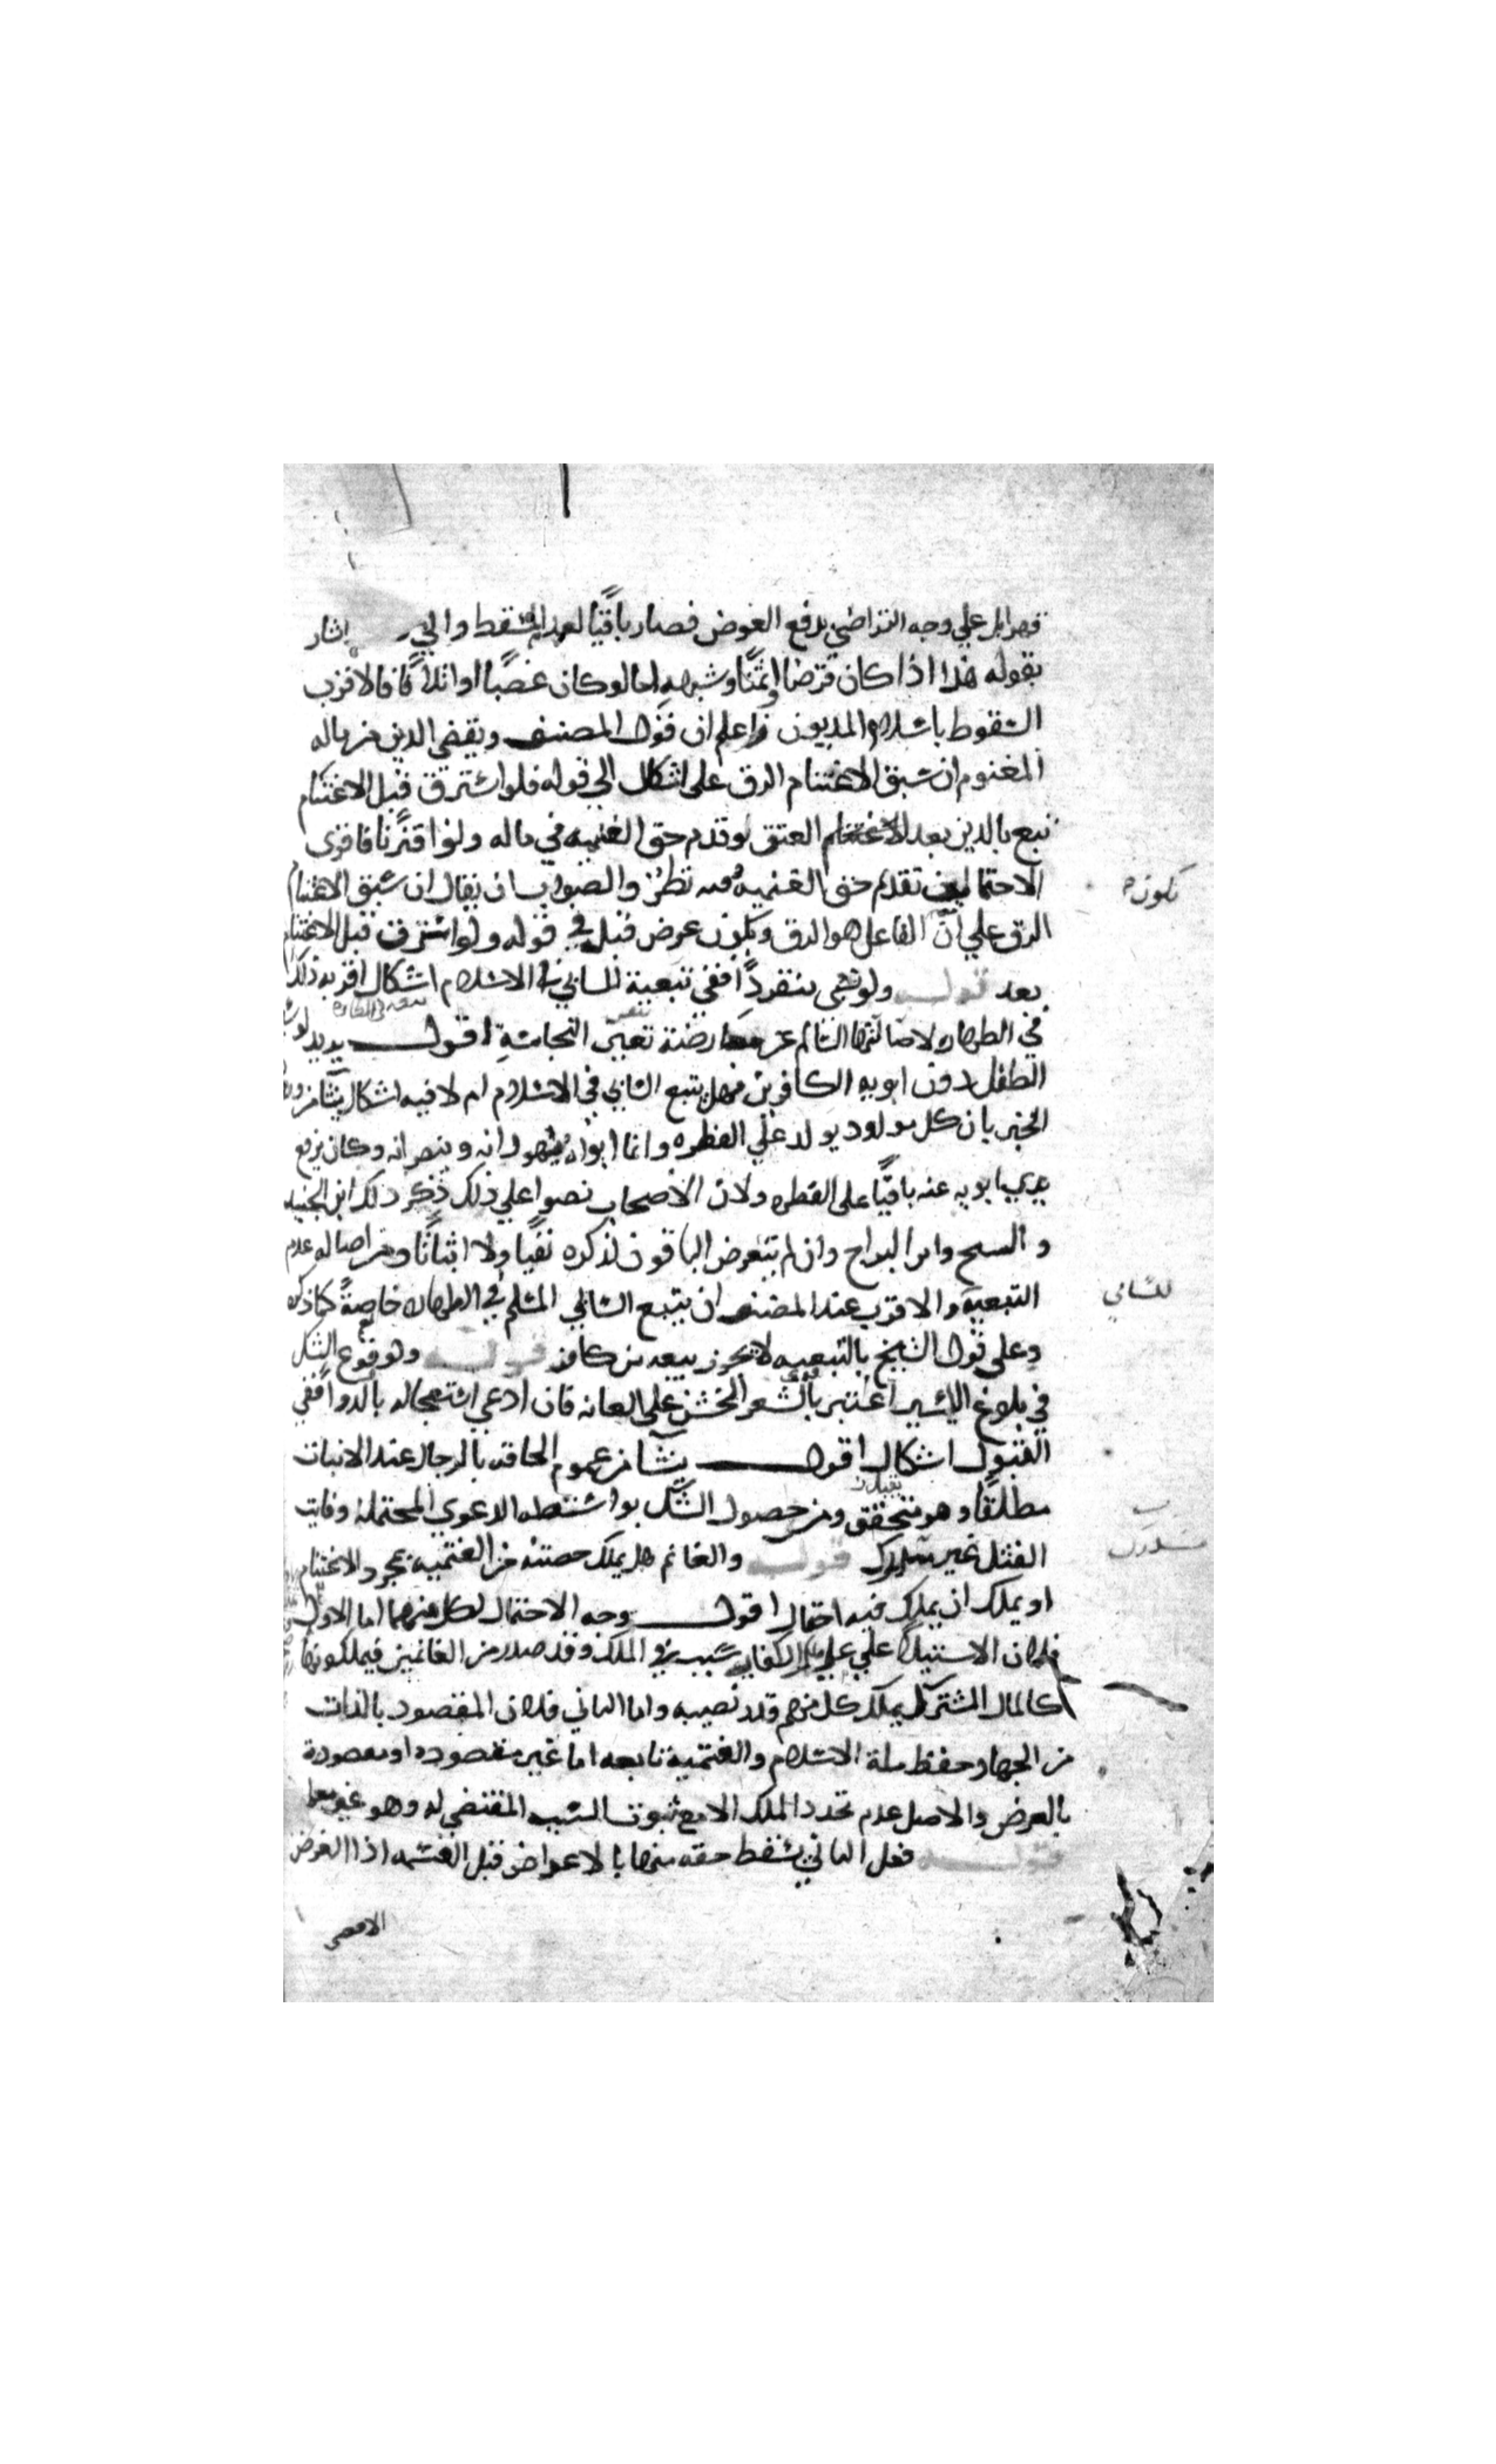 قهرا بل علي وجه التراضي بدفع العوض فصار باقيا لعدم المسقط والي اشار
بقوله هذا اذا كان قرضا او ثمنا وشبهه اما لو كان غصبا او اتلافا فالاقرب
السقوط باسلام المديون واعلم ان قول المصنف ويقضي الدين من ماله
المغنوم ان سبق الاغتنام الرق على اشكال الي قوله فلو استرق قبل الاغتنام
تبع بالدين بعد العتق لو قدم حق الغنيمه في ماله ولو اقترنا فاقوى
الاحتمالين تقديم حق الغنيمه فيه نظر والصواب ان يقال ان سبق الاغتنام
الرق علي ان الفاعل هو الرق ويكون عوض قبل في قوله ولو استرق قبل الاغتنام
بعد قوله ولو سبي منفردا ففي تبعية للسابي في الاسلام اشكال اقربه ذلك
في الطهاره لاصالتها السالم عن معارضة تعين النجاسة اقول يريد لو
الطفل دون ابويه الكافرين فهل يتبع السابي في الاسلام ام لا فيه اشكال ينشا من
الخبر بان كل مولود يولد علي الفطره وانما ابواه يهودانه وينصرانه وكان يرفع
يدي ابويه عنه باقيا على الفطره ولان الاصحاب نصوا علي ذلك ذكر ذلك ابن الجنيد
والشيخ وابن البراج وان لم يتعرض الباقون لذكره نفيا ولا اثباتا ومن اصاله عدم
التبعيه والاقرب عند المصنف ان يتبع السابي المسلم في الطهاره خاصة كما ذكره
وعلى قول الشيخ بالتبعيه لا يجوز بيعه من كافر قوله ولو وقع الشك
في بلوغ الاسير اعتبر بالشعر الخشن على العانه فان ادعي استعجاله بالدوا ففي
القبول اشكال اقول ينشا من عموم الحاقه بالرجال عند الانبات
مطلقا وهو متحقق ومن حصول الشك بواسطه الدعوي المحتمله وفايت
القتل غير مستدرك قوله والغانم هل يملك حصته من الغنيمه بمجرد الاغتنام
او يملك ان يملك فيه احتمال اقول وجه الاحتمال لكل منهما اما الاول
فلان الاستيلا علي الكفار سبب في الملك وقد صدر من الغانمين فيملكونها
كالمال المشترك يملك كل منهم قدر نصيبه واما الثاني فلان المقصود بالذات
من الجهاد حفظ ملة الاسلام والغنيمة تابعه اما غير مقصوده او مقصودة
بالعرض والاصل عدم تجدد الملك الا مع ثبوت السبب المقتضي له وهو غير
قوله فعلى الثاني يسقط حقه منها بالاعراض قبل القسمه اذ الغرض
تكون
للسابي